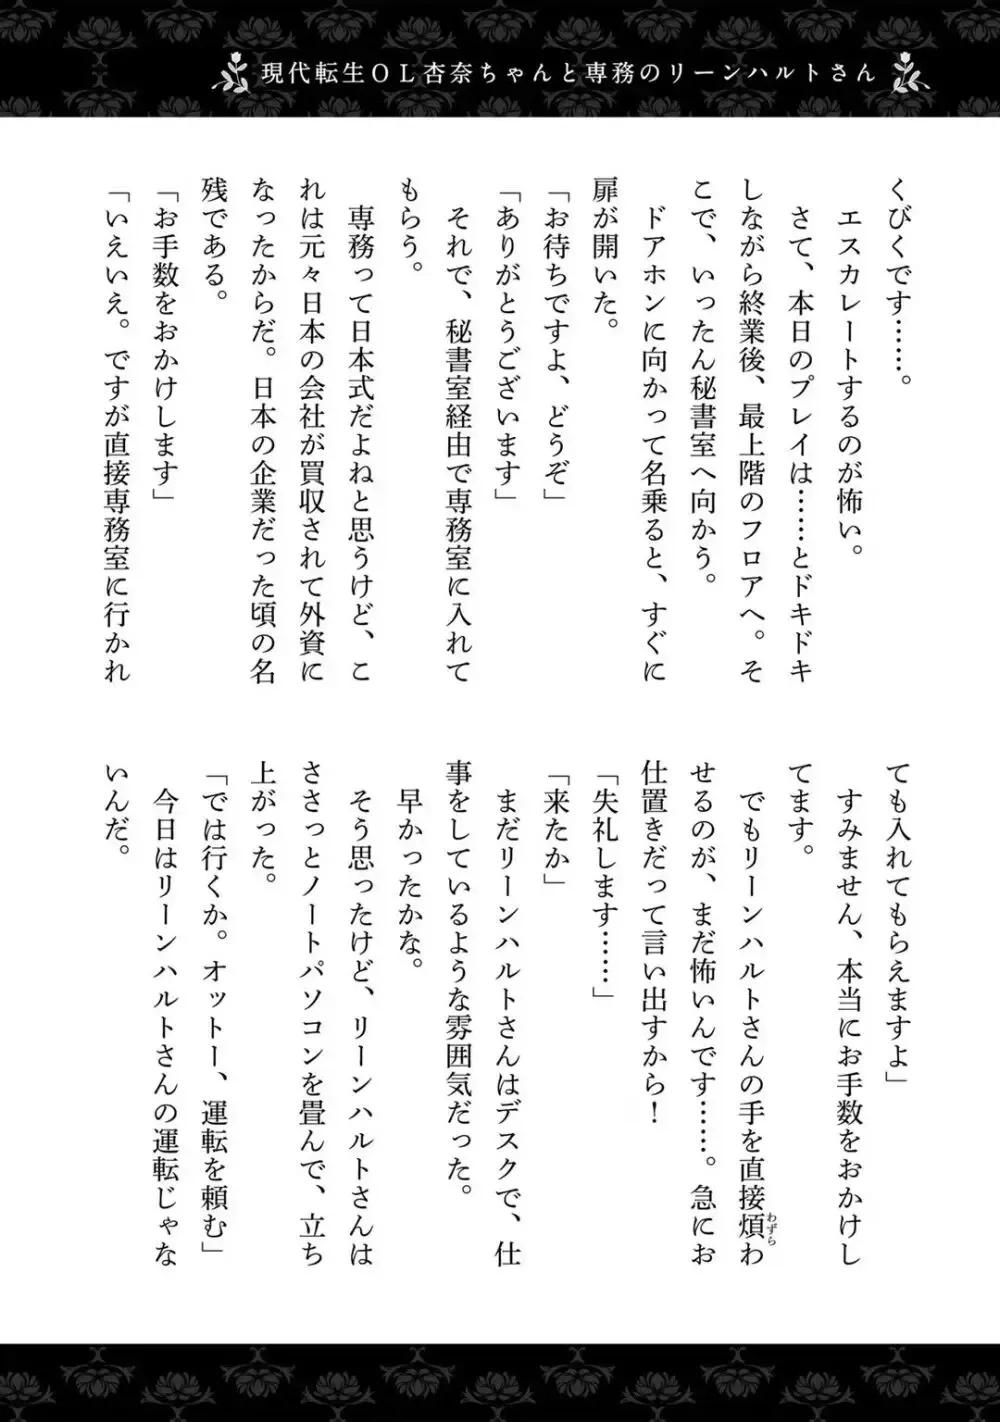 現代転生OL杏奈ちゃんと専務のリーンハルトさん
くびくです……。
エスカレートするのが怖い。
さて、本日のプレイは……とドキドキ
しながら終業後、最上階のフロアへ。そ
こで、いったん秘書室へ向かう。
ドアホンに向かって名乗ると、すぐに
扉が開いた。
「お待ちですよ、どうぞ」
「ありがとうございます」
それで、秘書室経由で専務室に入れて
もらう。
専務って日本式だよねと思うけど、こ
れは元々日本の会社が買収されて外資に
なったからだ。日本の企業だった頃の名
残である。
「お手数をおかけします」
「いえいえ。ですが直接専務室に行かれ
ても入れてもらえますよ」
すみません、本当にお手数をおかけし
てます。
でもリーンハルトさんの手を直接煩わ
わずら
せるのが、まだ怖いんです……。急にお
仕置きだって言い出すから！
「失礼します……」
「来たか」
まだリーンハルトさんはデスクで、仕
事をしているような雰囲気だった。
早かったかな。
そう思ったけど、リーンハルトさんは
ささっとノートパソコンを畳んで、立ち
上がった。
「では行くか。オットー、運転を頼む」
今日はリーンハルトさんの運転じゃな
いんだ。